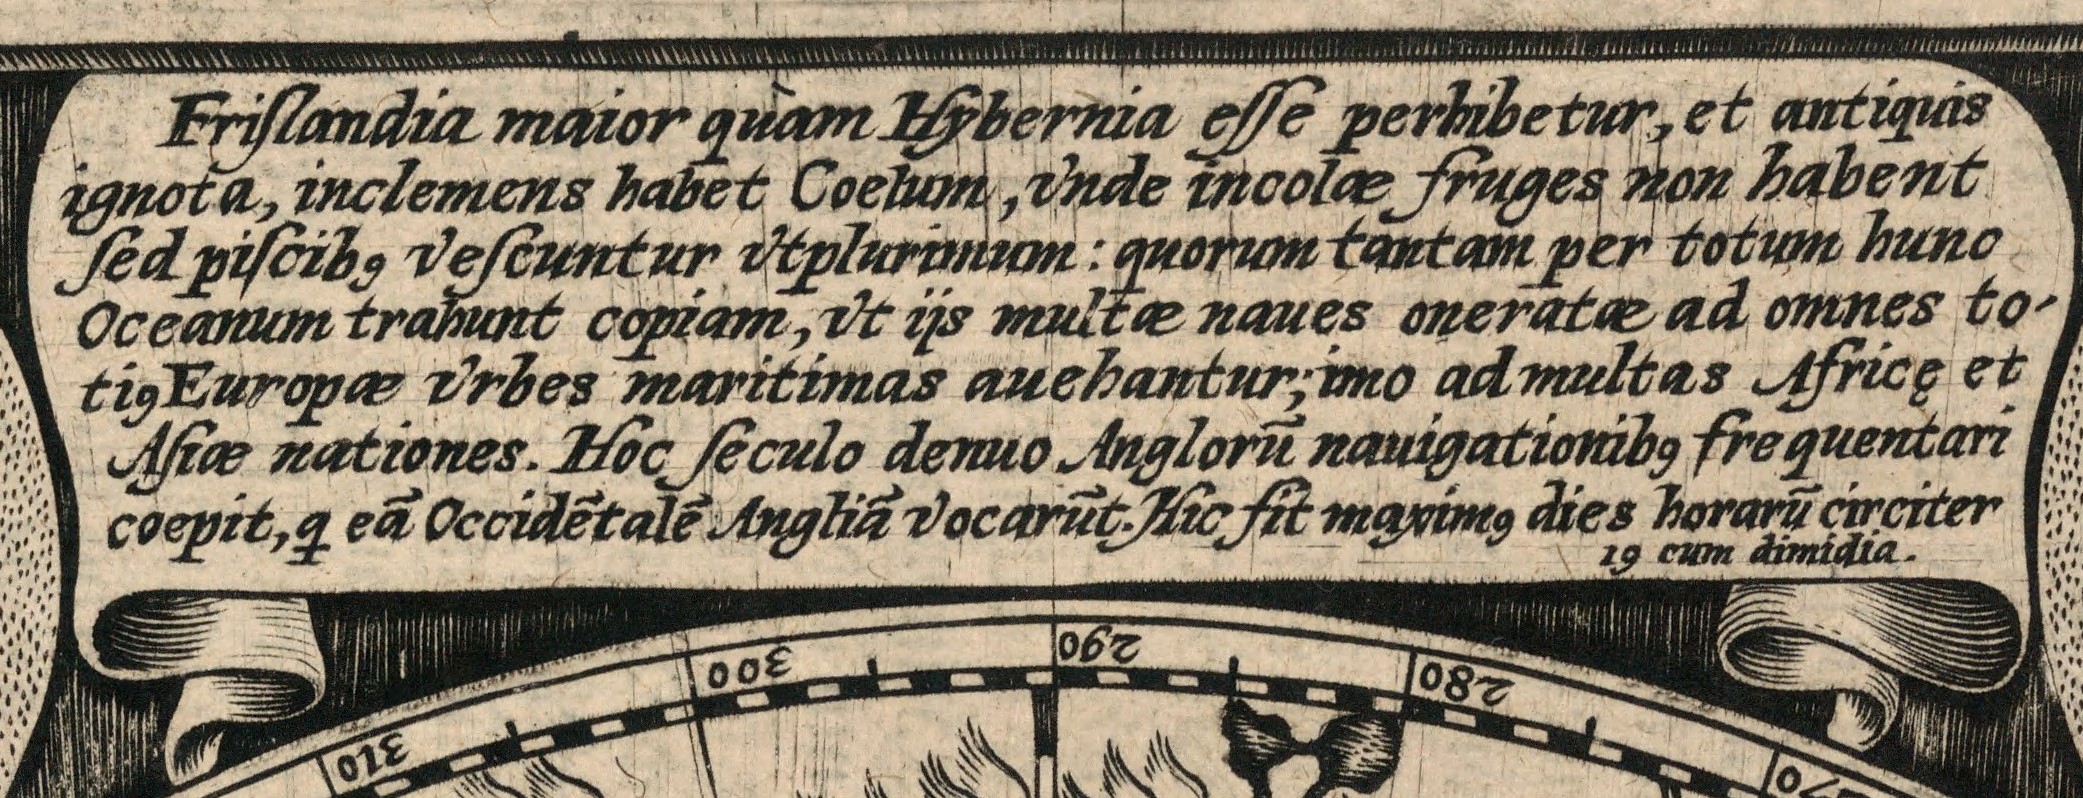 Friſlandia maior quàm Hybernia eſſe perhibetur, et antiquis
ignota, inclemens habet Coelum, vnde incolæ fruges non habent
ſed piſcibꝰ veſcuntur vtplurimum: quorum tantam per totum hunc
Oceanum trahunt copiam, vt ijs multæ naues oneratæ ad omnes to-
tiꝰ Europæ vrbes maritimas auehantur; imo ad multas Africę et
Aſiæ nationes. Hoc ſeculo denuo Anglorũ nauigationibꝰ frequentari
coepit, q eã Occidẽtalẽ Angliã vocarũt. Hic fit maximꝰ dies horarũ circiter
19 cum dimidia.
310 300 290 280 270